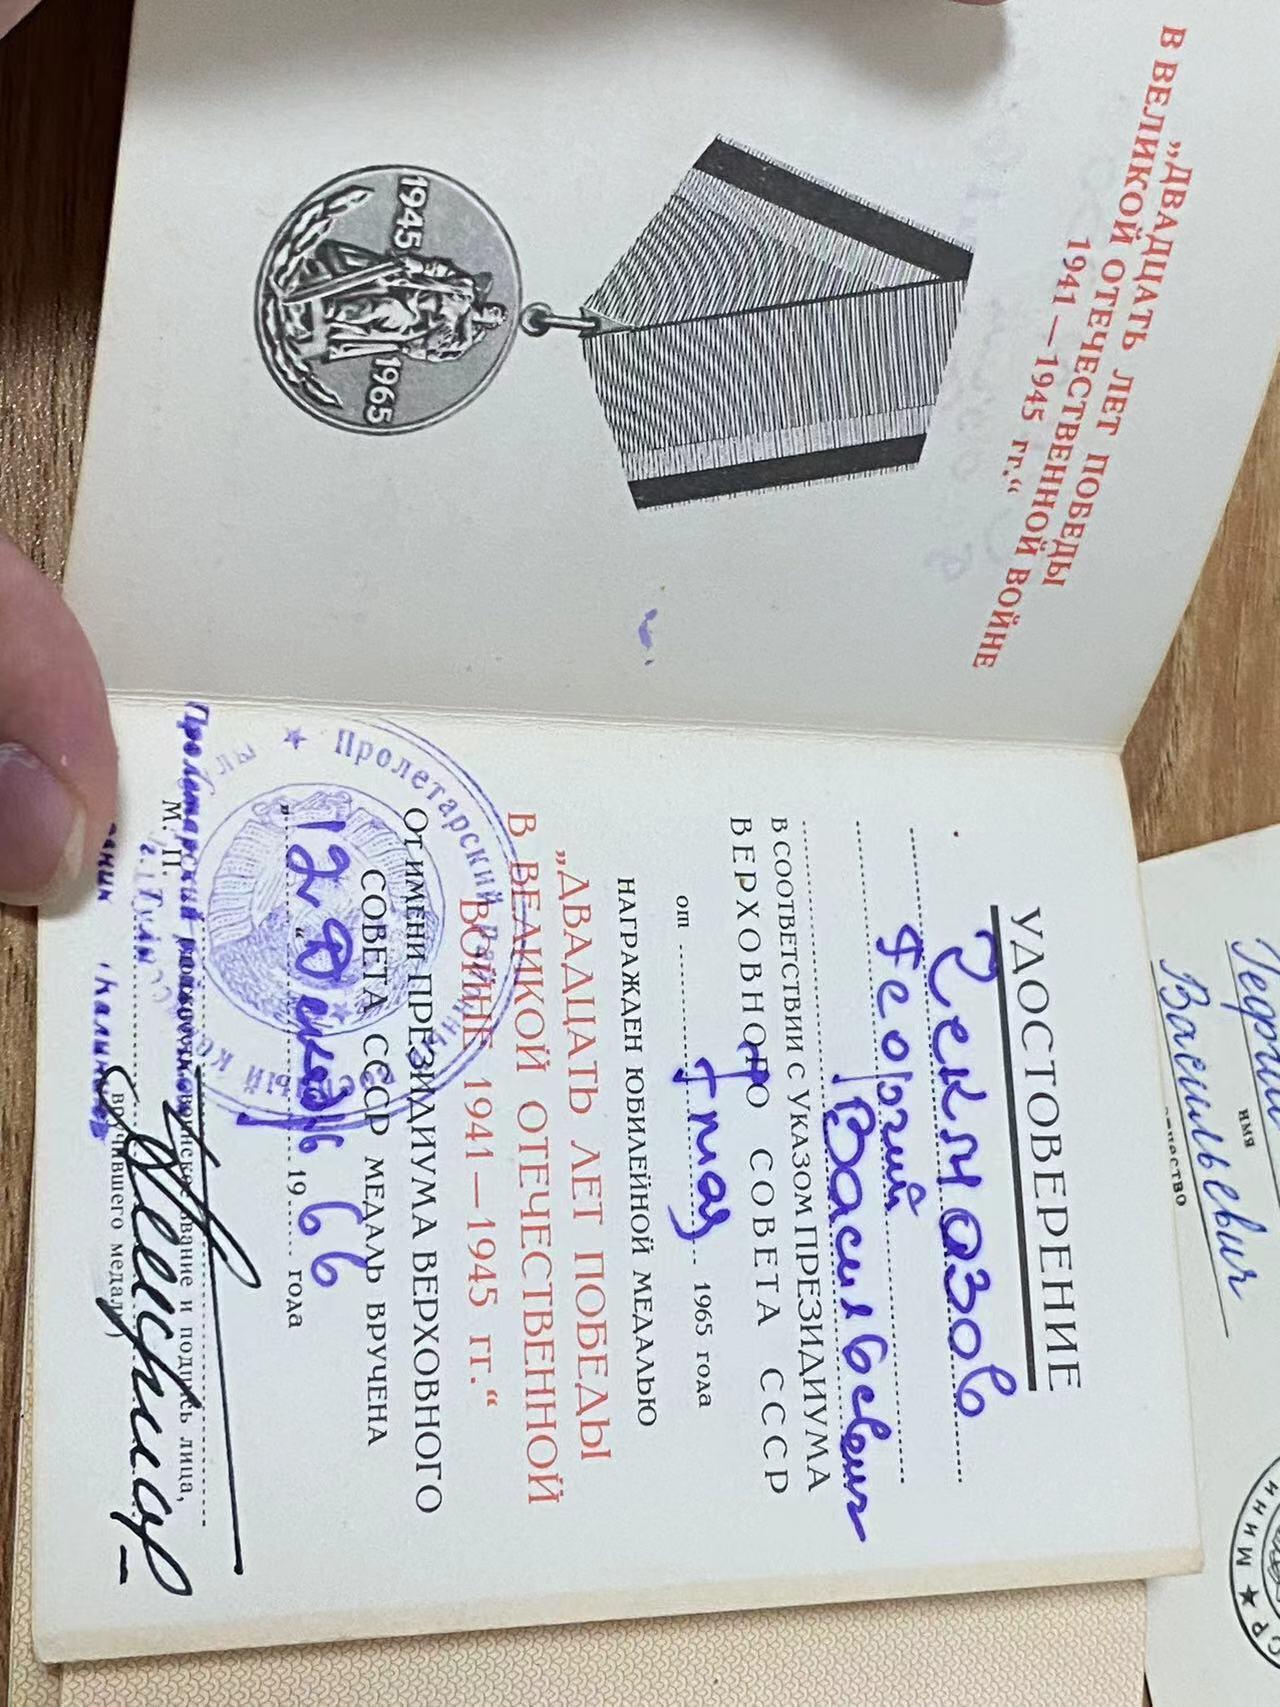 „ДВАДЦАТЬ ЛЕТ ПОБЕДЫ
В ВЕЛИКОЙ ОТЕЧЕСТВЕННОЙ ВОЙНЕ
1941—1945 гг.“
1945
1965
УДОСТОВЕРЕНИЕ
Чекмазов
Георгий
Васильевич
В СООТВЕТСТВИИ С УКАЗОМ ПРЕЗИДИУМА
ВЕРХОВНОГО СОВЕТА СССР
от 7 мая 1965 года
НАГРАЖДЕН ЮБИЛЕЙНОЙ МЕДАЛЬЮ
„ДВАДЦАТЬ ЛЕТ ПОБЕДЫ
В ВЕЛИКОЙ ОТЕЧЕСТВЕННОЙ
ВОЙНЕ 1941—1945 гг.“
ОТ ИМЕНИ ПРЕЗИДИУМА ВЕРХОВНОГО
СОВЕТА СССР МЕДАЛЬ ВРУЧЕНА
„12“ 1966 года
Пролетарский
М. П.
звание и подпись лица,
вручившего медаль)
г. Тулы
Пролетарский
Георгий
имя
Васильевич
отчество